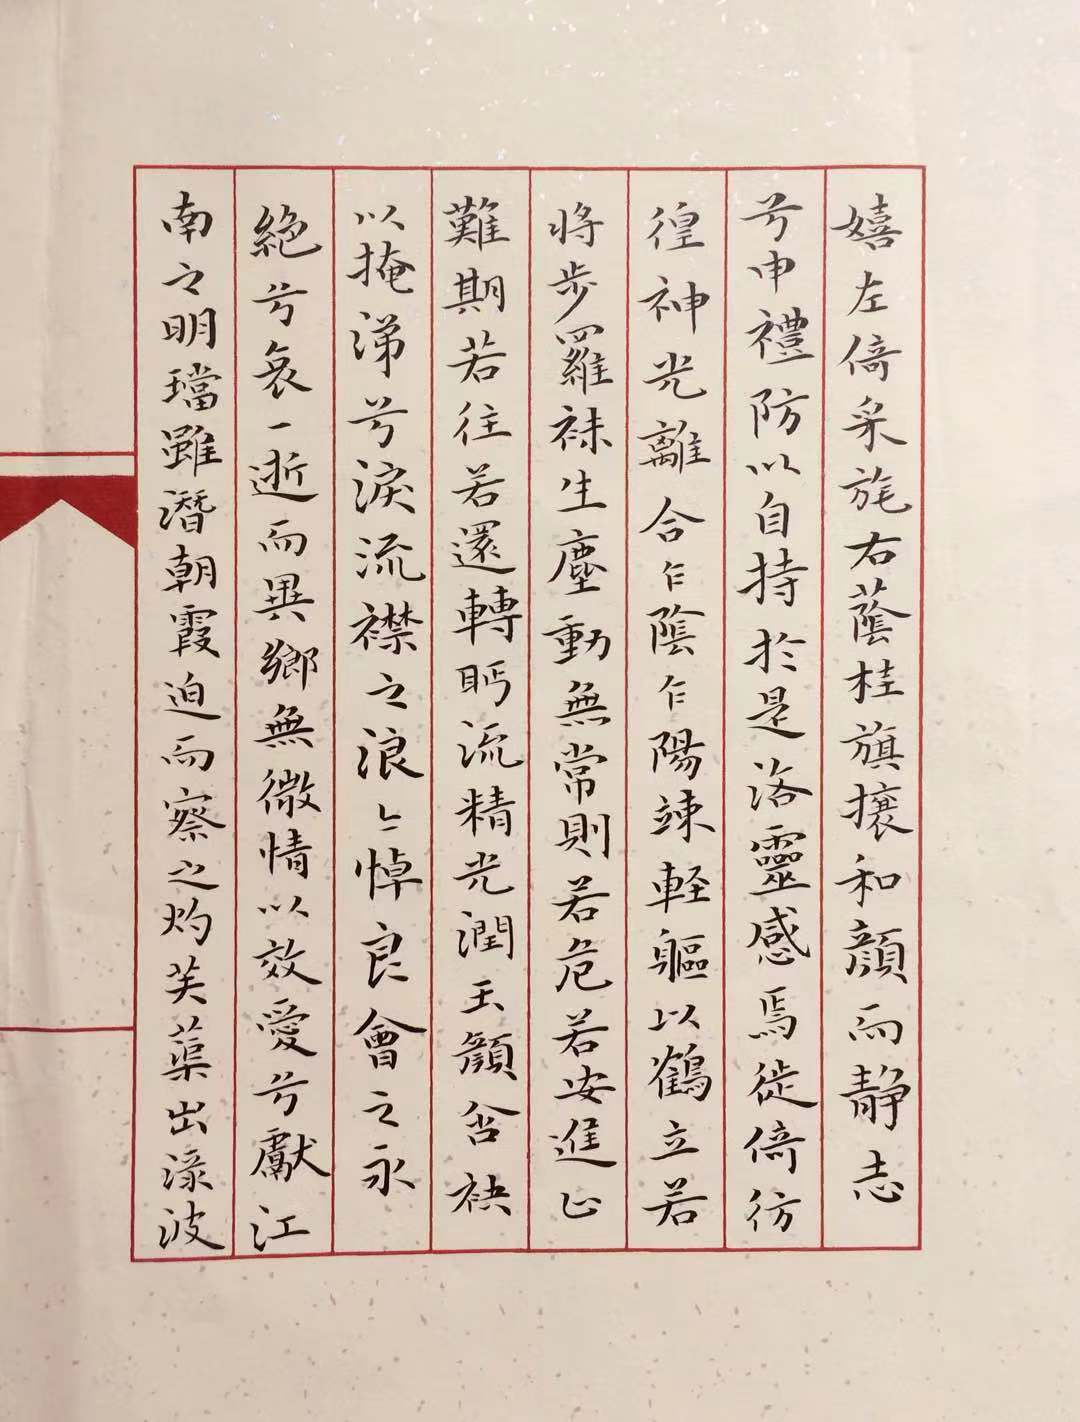 嬉左倚采旄右蔭桂旗攘和顏而静志
兮申禮防以自持於是洛靈感焉徙倚彷
徨神光離合乍陰乍陽竦軽軀以鶴立若
將步羅袜生塵動無常則若危若安進止
難期若往若還轉眄流精光潤玉顏含袂
以掩涕兮淚流襟之浪〻悼良會之永
絶兮哀一逝而異鄉無微情以效愛兮獻江
南之明璫雖潛朝霞迫而察之灼芙蕖出淥波